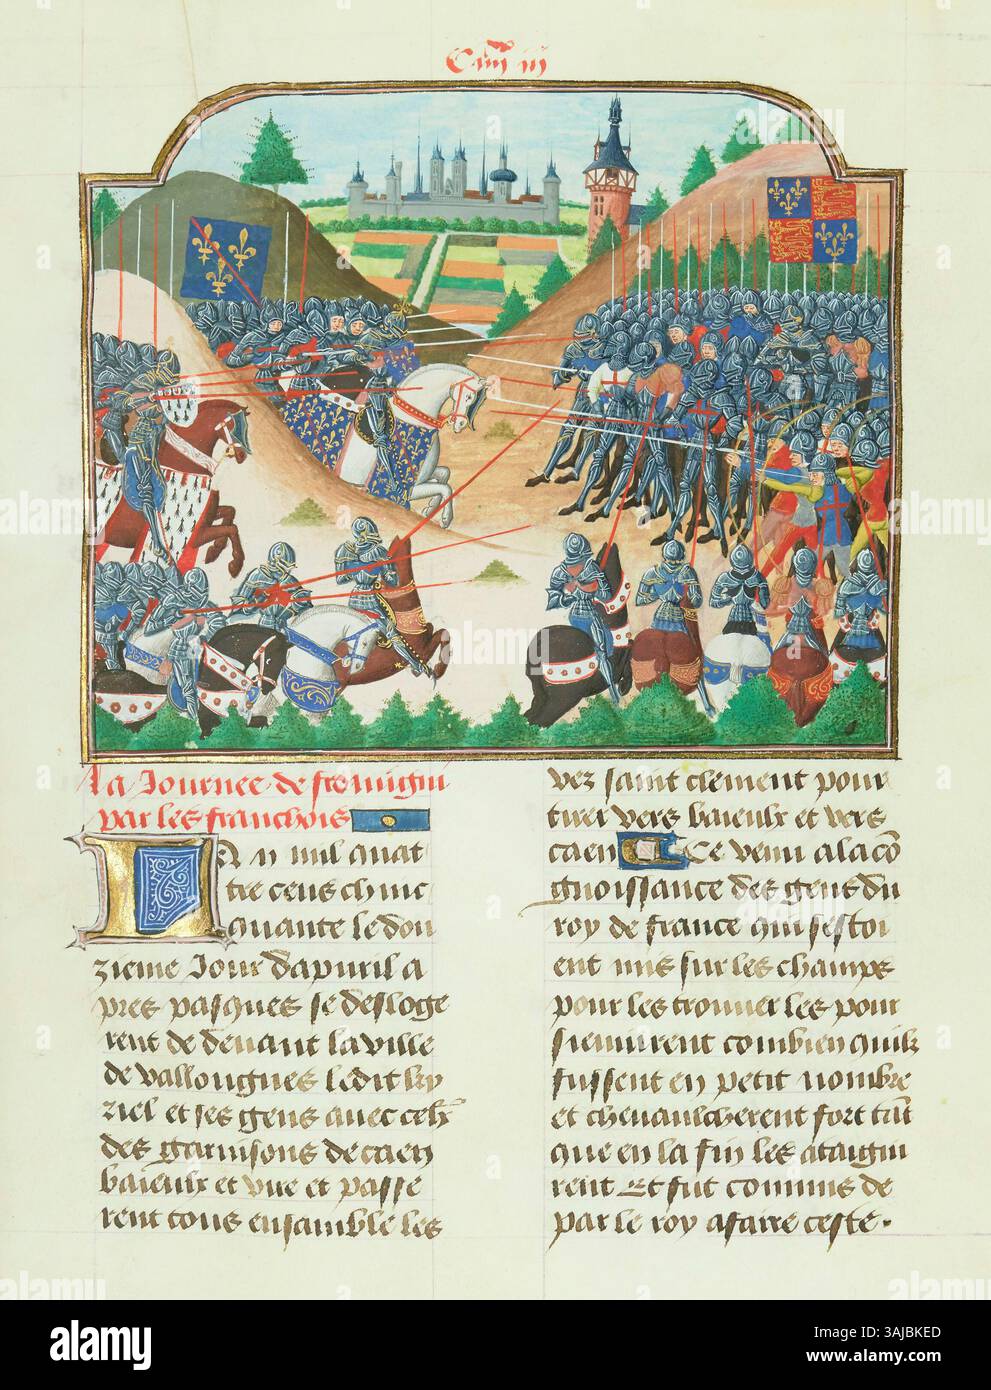 Cam iii
La Journee de fromigni
par les franchois
L An mil quat
tre cens chinc
quante le dou
zieme Jour dapuril a
pres pasques se desloge
rent de deuant la ville
de vallougnes ledit ky
ziel et ses gens auec celx
des garnisons de caen
baieulx et vire et passe
rent tous ensamble les
vez saint clement pour
tirer vers baieulx et vers
caen Ce venu a la co
gnoissance des gens du
roy de france qui sestoi
ent mis sur les champs
pour les trouuer les pour
sieuuirent combien quilz
fussent en petit nombre
et cheuaulcherent fort tāt
que en la fin les ataigni
rent Et fut commis de
par le roy a faire ceste.
alamy
Image ID: 3AJBKED
www.alamy.com